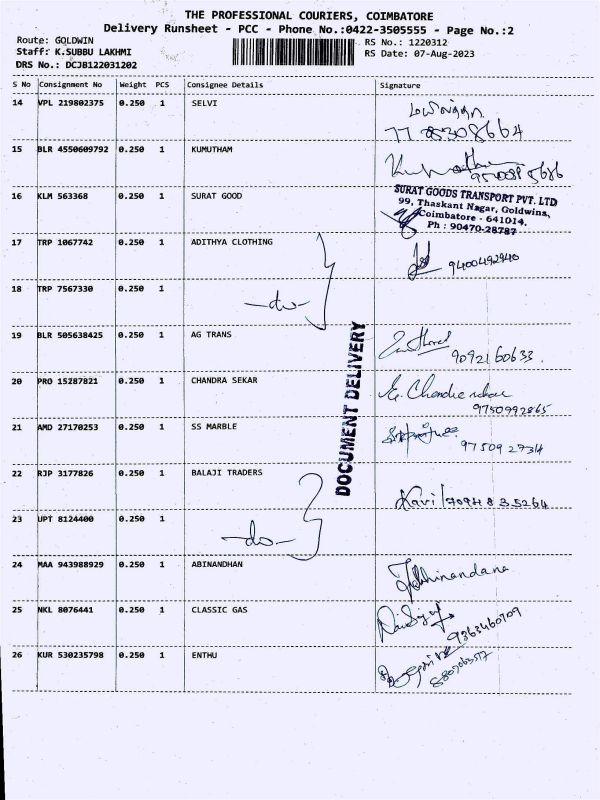 THE PROFESSIONAL COURIERS, COIMBATORE
Delivery Runsheet - PCC - Phone No.:0422-3505555 - Page No.:2
Route: GOLDWIN
RS No.: 1220312
Staff: K.SUBBU LAKHMI
RS Date: 07-Aug-2023
DRS No.: DCJB122031202
S No Consignment No Weight PCS Consignee Details Signature
14 VPL 219802375 0.250 1 SELVI
15 BLR 4550609792 0.250 1 KUMUTHAM
16 KLM 563368 0.250 1 SURAT GOOD
SURAT GOODS TRANSPORT PVT. LTD
99, Thaskant Nagar, Goldwins,
Coimbatore - 641014.
Ph : 90470-28787
17 TRP 1067742 0.250 1 ADITHYA CLOTHING
9400492940
18 TRP 7567330 0.250 1
-do-
19 BLR 505638425 0.250 1 AG TRANS
9092160633.
DOCUMENT DELIVERY
20 PRO 15287821 0.250 1 CHANDRA SEKAR
9750992865
21 AMD 27170253 0.250 1 SS MARBLE
9750927314
22 RJP 3177826 0.250 1 BALAJI TRADERS
Kavi / 7094835264
23 UPT 8124400 0.250 1
-do-
24 MAA 943988929 0.250 1 ABINANDHAN
25 NKL 8076441 0.250 1 CLASSIC GAS
9363460709
26 KUR 530235798 0.250 1 ENTHU